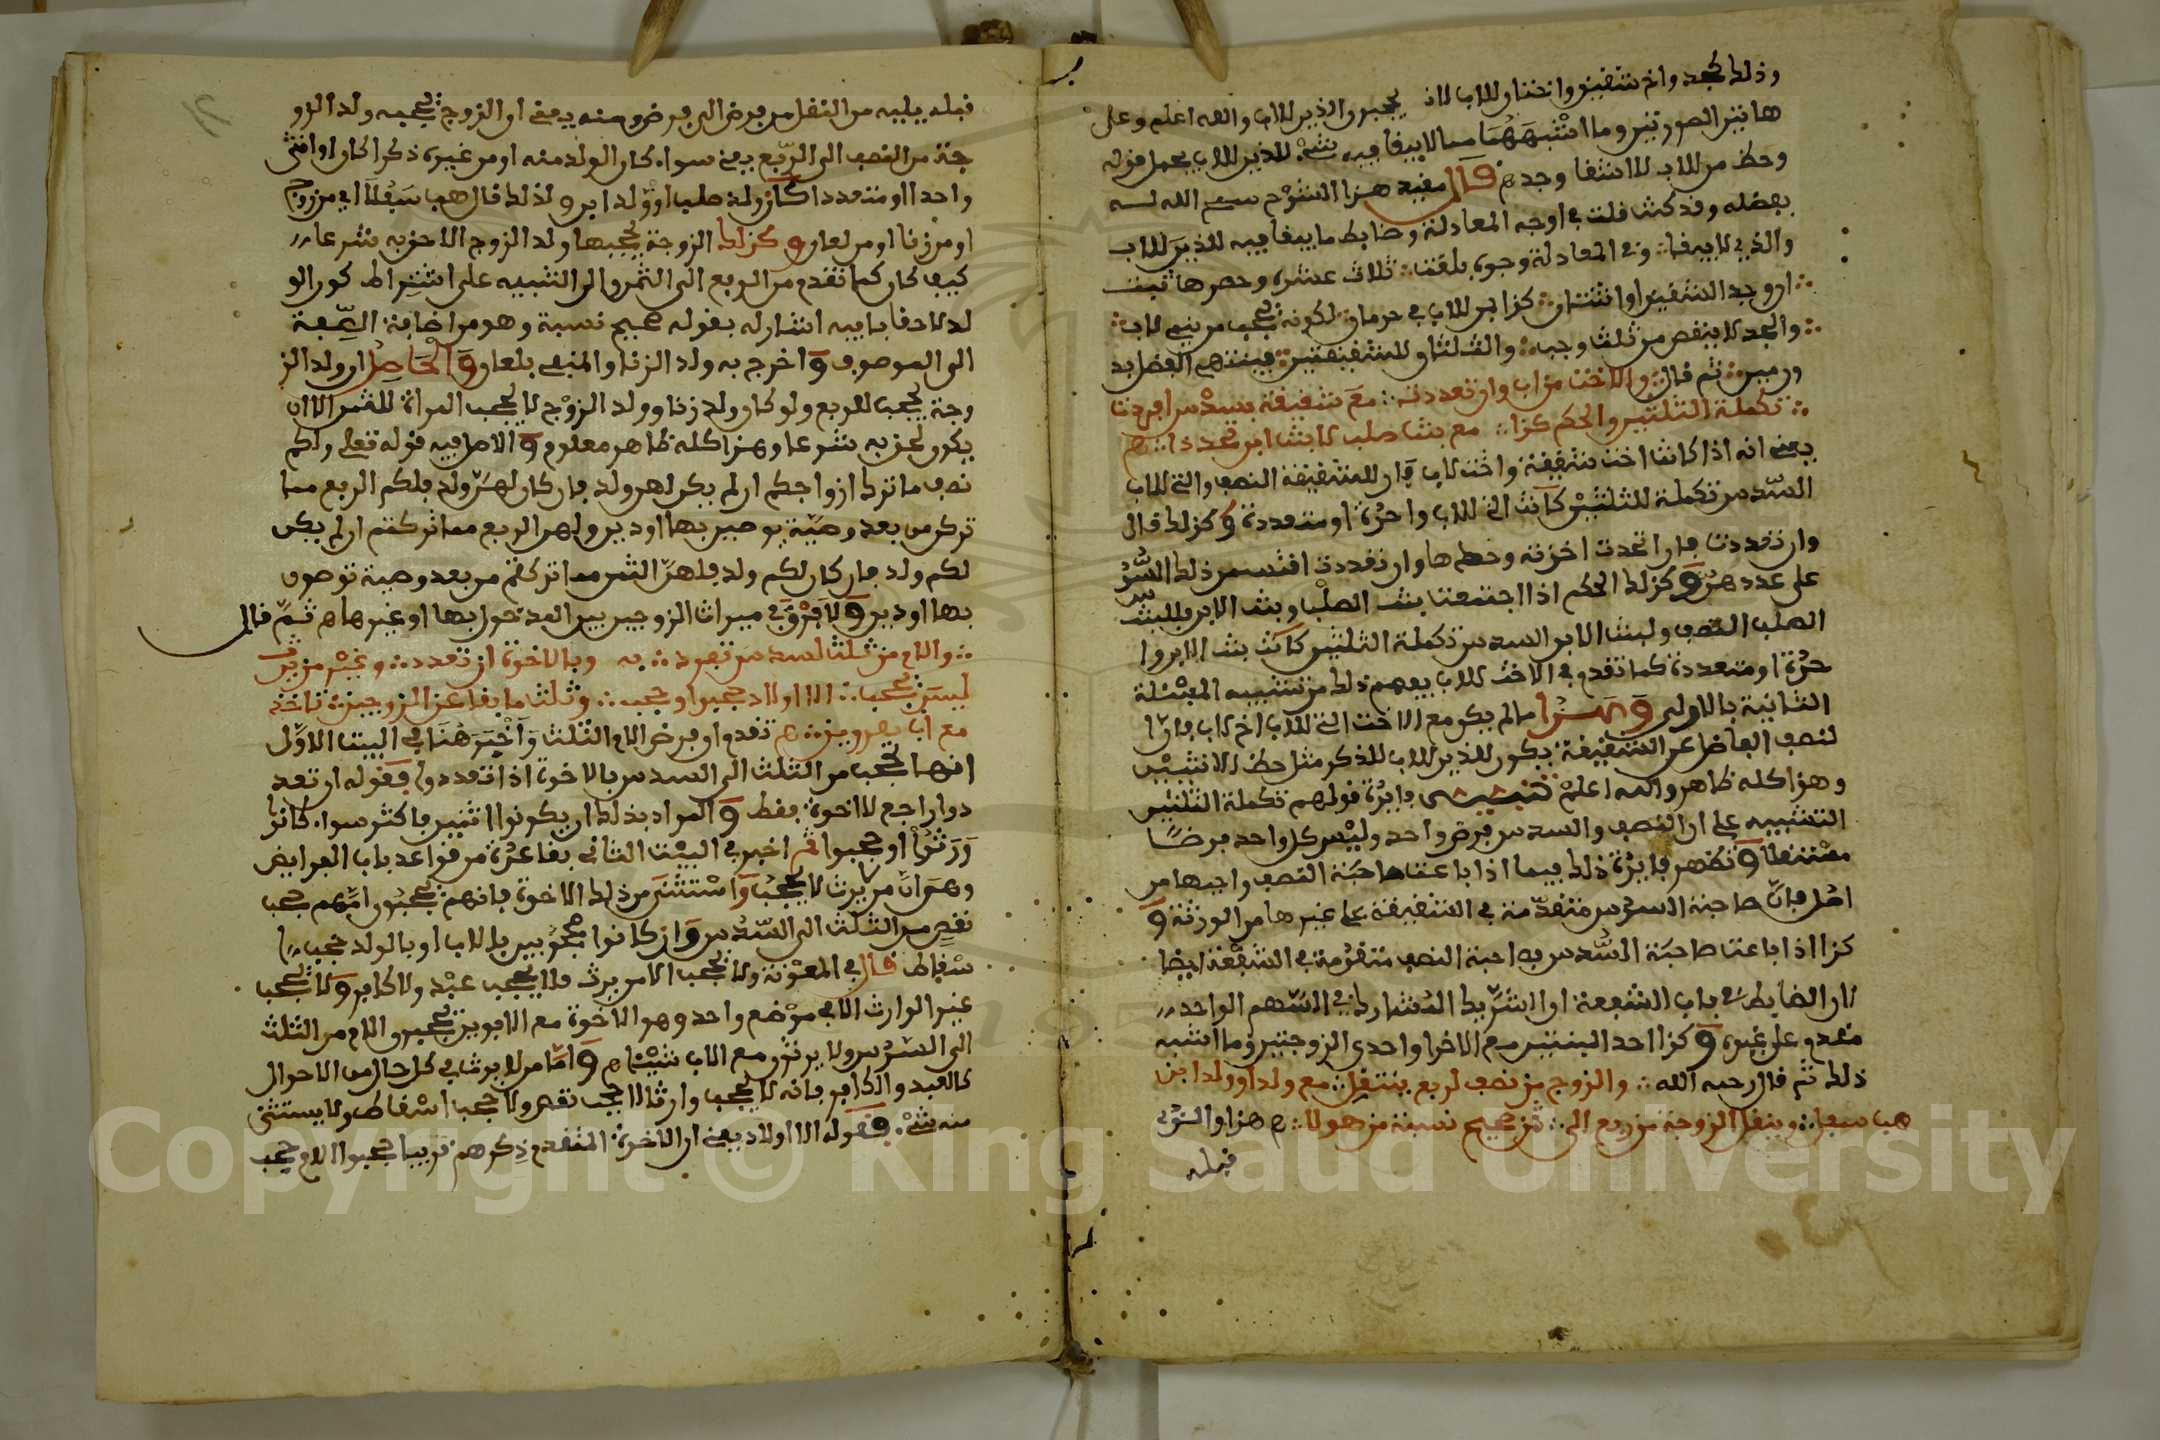 وذلك كجد واخ شقيق واختان للاب لان يحجبن والذين للاب والله اعلم وعلى
هاتين الصورتين وما اشبههما مما لا يبقا فيه شيء للذين للاب يحمل قوله
وحظ من للاب للانتفا وجد ه قال مقيد هذا الشرح سمح الله له
بفضله وقد كنت قلت في اوجه المعادلة وضابط ما يبقا فيه للذين للاب
والذي لا يبقا ∴ وفي المعادلة وجوه بلغت ∴ ثلاث عشرة وحصرها ثبت
∴ ان وجد الشقيق او اثنتان ∴ كذا بن للاب في حرمان ∴ لكونه يحجب من ينمى لاب ∴
∴ والجد لا ينقص من ثلث وجب ∴ والثلثان للشقيقتين ∴ فينتهي الفضل بد
ون مين ∴ ثم قال ∴ والاخت من اب وان تعددت ∴ مع شقيقة بسدس افردت
∴ تكملة الثلثين والحكم كذا ∴ مع بنت صلب لابنت ابن فحذ ذا ∴ ه
يعني انه اذا كانت اخت شقيقة واخت لاب فان للشقيقة النصف والتي للاب
السدس تكملة للثلثين كانت التي للاب واحدة او متعددة وكذلك قال
وان تعددت فان اتحدت اخذته وحدها وان تعددت اقتسمن ذلك السدس
على عددهن وكذلك الحكم اذا اجتمعت بنت الصلب وبنت الابن فلبنت
الصلب النصف ولبنت الابن السدس تكملة الثلثين كانت بنت الابن وا
حدة او متعددة كما تقدم في الاخت للاب يفهم ذلك من تشبيه المسئلة
الثانية بالاولى وهذا ما لم يكن مع الاخت التي للاب اخ لاب فان ا
لنصف الفاضل عن الشقيقة يكون للذين للاب للذكر مثل حظ الانثيين
وهذا كله ظاهر والله اعلم تنبيه فايدة قولهم تكملة الثلثين
التنبيه على ان النصف والسدس فرض واحد وليس كل واحد فرضا
مستقلا وتظهر فايدة ذلك فيما اذا باعت صاحبة النصف واجبها من
اصل فان صاحبة السدس متقدمة في الشفعة على غيرها من الورثة و
كذا اذا باعت صاحبة السدس فصاحبة النصف متقدمة في الشفعة ايضا
لان الضابط في باب الشفعة ان الشريك المشارك في السهم الواحد
مقدم على غيره وكذا احد البنتين مع الاخرى واحدى الزوجتين وما اشبه
ذلك ثم قال رحمه الله ∴ والزوج من نصف لربع ينتقل ∴ مع ولد او ولد ابن
هب سفل ∴ وينقل الزوجة من ربع الى ∴ ثمن صحيح نسبة من هولا ∴ ه هذا والذي
قبله
قبله يليه من النقل من فرض الى فرض ومنه يعني ان الزوج يحجبه ولد الزو
جة من النصف الى الربع يعني سواء كان الولد منه او من غيره ذكرا كان او انثى
واحدا او متعددا كان ولد صلب او ولد ابن ولذلك قال هب سفلا اي من زوج
او من زنا او من لعان وكذلك الزوجة يحجبها ولد الزوج اللاحق به شرعا
كيف كان كما تقدم من الربع الى الثمن والى التنبيه على اشتراط كون الو
لد لاحقا بابيه اشار له بقوله صحيح نسبة وهو من اضافة الصفة
الى الموصوف واخرج به ولد الزنا والمنفي بلعان والحاصل ان ولد الز
وجة يحجب للربع ولو كان ولد زنا وولد الزوج لا يحجب المراة للثمن الا ان
يكون لحق به شرعا وهذا كله ظاهر معلوم والاصل فيه قوله تعلى ولكم
نصف ما ترك ازواجكم ان لم يكن لهن ولد فان كان لهن ولد فلكم الربع مما
تركن من بعد وصية يوصين بها او دين ولهن الربع مما تركتم ان لم يكن
لكم ولد فان كان لكم ولد فلهن الثمن مما تركتم من بعد وصية توصون
بها او دين ولا فرق في ميراث الزوجين بين المدخول بها او غيرها ه ثم قال
∴ والام من ثلث لسدس تفرد ∴ به وبالاخوة ان تعدد ∴ وغير من يرث
ليس يحجب ∴ الا اولاد حجبوا وحجب ∴ وثلث ما بقا عن الزوجين ∴ تاخذ
مع اب بفرضين ∴ ه تقدم ان فرض الام الثلث واخبر هنا في البيت الاول
انها تحجب من الثلث الى السدس بالاخوة اذا تعددوا فقوله ان تعد
دوا راجع للاخوة فقط والمراد بذلك ان يكونوا اثنين فاكثر سواء كانوا
ورثوا او حجبوا ثم اخبر في البيت الثاني بقاعدة من قواعد باب الفرايض
وهي ان من لا يرث لا يحجب واستثنى من ذلك الاخوة فانهم يحجبون امهم حجب
نقص من الثلث الى السدس وان كانوا محجوبين بالاب او بالولد حجب
سقاط قال في المعونة ولا يحجب الا من يرث فلا يحجب عبد ولا كافر ولا يحجب
غير الوارث الا في موضع واحد وهو الاخوة مع الابوين يحجبون الام من الثلث
الى السدس ولا يرثون مع الاب شيئا ه واما من لا يرث في كل حال من الاحوال
كالعبد والكافر فانه لا يحجب وارثا لا حجب نقص ولا حجب اسقاط ولا يستثنى
منه شيء فقوله الا اولاد يعني ان الاخوة المتقدم ذكرهم قريبا حجبوا الام حجب
Copyright © King Saud University